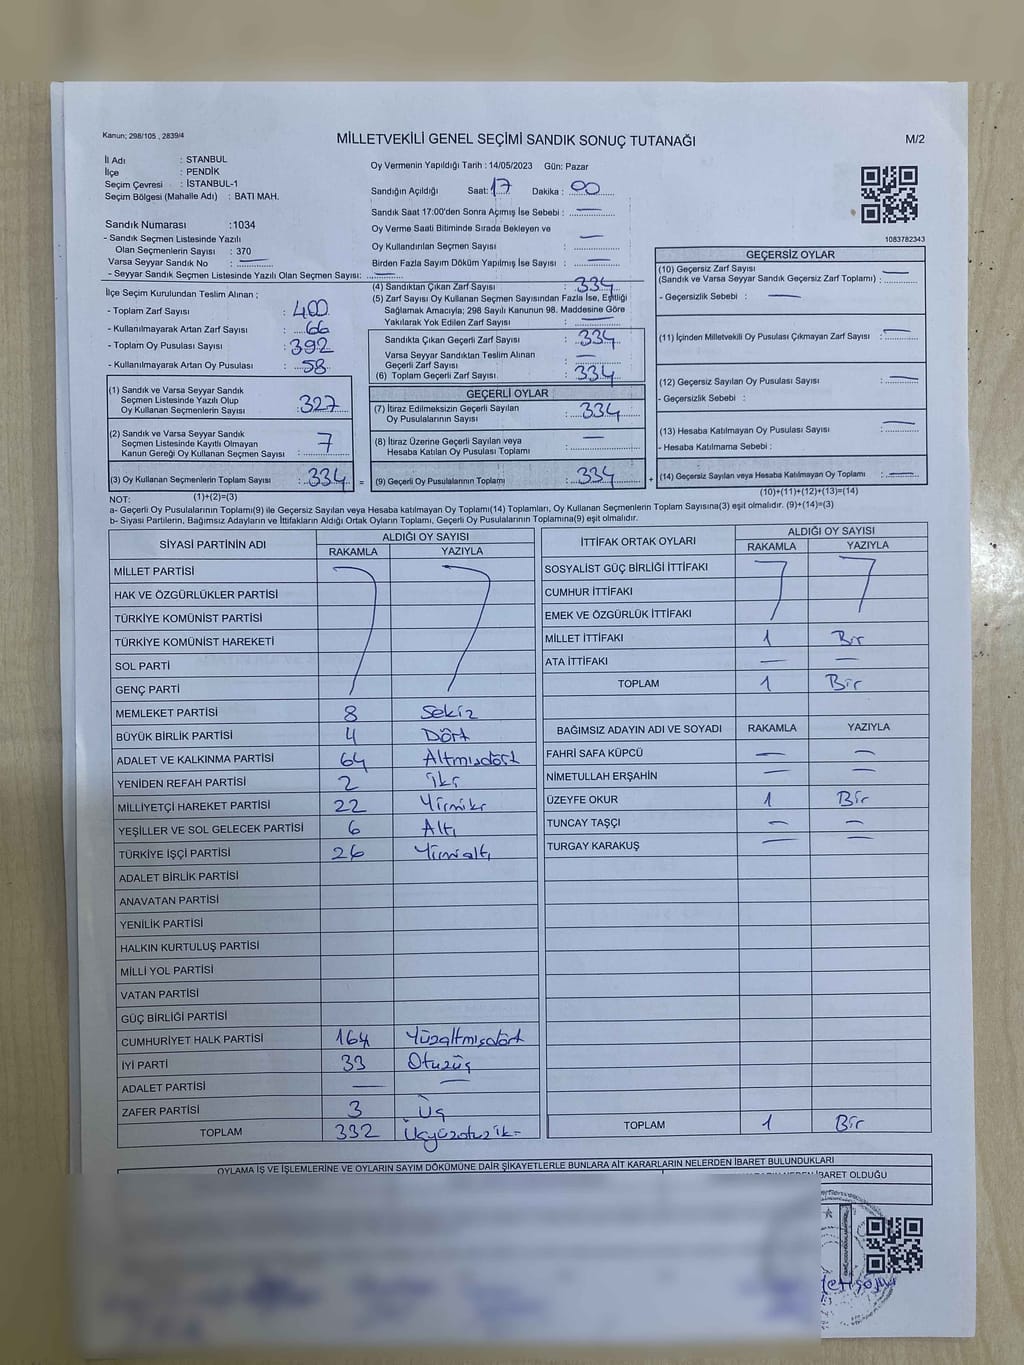 Kanun; 298/105 , 2839/4
MİLLETVEKİLİ GENEL SEÇİMİ SANDIK SONUÇ TUTANAĞI
M/2
İl Adı : STANBUL
İlçe : PENDİK
Seçim Çevresi : İSTANBUL-1
Seçim Bölgesi (Mahalle Adı) : BATI MAH.
Oy Vermenin Yapıldığı Tarih : 14/05/2023 Gün: Pazar
Sandığın Açıldığı Saat: 17 Dakika : 00
Sandık Saat 17:00'den Sonra Açımış İse Sebebi : —
Oy Verme Saati Bitiminde Sırada Bekleyen ve
Oy Kullandırılan Seçmen Sayısı : —
Birden Fazla Sayım Döküm Yapılmış İse Sayısı : —
1083782343
Sandık Numarası :1034
- Sandık Seçmen Listesinde Yazılı
Olan Seçmenlerin Sayısı : 370
Varsa Seyyar Sandık No : —
- Seyyar Sandık Seçmen Listesinde Yazılı Olan Seçmen Sayısı: —
İlçe Seçim Kurulundan Teslim Alınan ;
- Toplam Zarf Sayısı : 400
- Kullanılmayarak Artan Zarf Sayısı : 66
- Toplam Oy Pusulası Sayısı : 392
- Kullanılmayarak Artan Oy Pusulası : 58
(1) Sandık ve Varsa Seyyar Sandık
Seçmen Listesinde Yazılı Olup
Oy Kullanan Seçmenlerin Sayısı : 327
(2) Sandık ve Varsa Seyyar Sandık
Seçmen Listesinde Kayıtlı Olmayan
Kanun Gereği Oy Kullanan Seçmen Sayısı : 7
(3) Oy Kullanan Seçmenlerin Toplam Sayısı : 334 =
(4) Sandıktan Çıkan Zarf Sayısı : 334
(5) Zarf Sayısı Oy Kullanan Seçmen Sayısından Fazla İse, Eşitliği
Sağlamak Amacıyla; 298 Sayılı Kanunun 98. Maddesine Göre
Yakılarak Yok Edilen Zarf Sayısı : —
Sandıkta Çıkan Geçerli Zarf Sayısı : 334
Varsa Seyyar Sandıktan Teslim Alınan
Geçerli Zarf Sayısı : —
(6) Toplam Geçerli Zarf Sayısı. : 334
GEÇERLİ OYLAR
(7) İtiraz Edilmeksizin Geçerli Sayılan
Oy Pusulalarının Sayısı : 334
(8) İtiraz Üzerine Geçerli Sayılan veya
Hesaba Katılan Oy Pusulası Toplamı : —
(9) Geçerli Oy Pusulalarının Toplamı : 334 +
GEÇERSİZ OYLAR
(10) Geçersiz Zarf Sayısı
(Sandık ve Varsa Seyyar Sandık Geçersiz Zarf Toplamı) : —
- Geçersizlik Sebebi : —
(11) İçinden Milletvekili Oy Pusulası Çıkmayan Zarf Sayısı : —
(12) Geçersiz Sayılan Oy Pusulası Sayısı : —
- Geçersizlik Sebebi :
(13) Hesaba Katılmayan Oy Pusulası Sayısı : —
- Hesaba Katılmama Sebebi :
(14) Geçersiz Sayılan veya Hesaba Katılmayan Oy Toplamı : —
NOT: (1)+(2)=(3)
(10)+(11)+(12)+(13)=(14)
a- Geçerli Oy Pusulalarının Toplamı(9) ile Geçersiz Sayılan veya Hesaba katılmayan Oy Toplamı(14) Toplamları, Oy Kullanan Seçmenlerin Toplam Sayısına(3) eşit olmalıdır. (9)+(14)=(3)
b- Siyasi Partilerin, Bağımsız Adayların ve İttifakların Aldığı Ortak Oyların Toplamı, Geçerli Oy Pusulalarının Toplamına(9) eşit olmalıdır.
SİYASİ PARTİNİN ADI ALDIĞI OY SAYISI
RAKAMLA YAZIYLA
MİLLET PARTİSİ
HAK VE ÖZGÜRLÜKLER PARTİSİ
TÜRKİYE KOMÜNİST PARTİSİ
TÜRKİYE KOMÜNİST HAREKETİ
SOL PARTİ
GENÇ PARTİ
MEMLEKET PARTİSİ 8 Sekiz
BÜYÜK BİRLİK PARTİSİ 4 Dört
ADALET VE KALKINMA PARTİSİ 64 Altmışdört
YENİDEN REFAH PARTİSİ 2 iki
MİLLİYETÇİ HAREKET PARTİSİ 22 Yirmiki
YEŞİLLER VE SOL GELECEK PARTİSİ 6 Altı
TÜRKİYE İŞÇİ PARTİSİ 26 Yirmialtı
ADALET BİRLİK PARTİSİ
ANAVATAN PARTİSİ
YENİLİK PARTİSİ
HALKIN KURTULUŞ PARTİSİ
MİLLİ YOL PARTİSİ
VATAN PARTİSİ
GÜÇ BİRLİĞİ PARTİSİ
CUMHURİYET HALK PARTİSİ 164 Yüzaltmışdört
İYİ PARTİ 33 Otuzüç
ADALET PARTİSİ — —
ZAFER PARTİSİ 3 Üç
TOPLAM 332 Üçyüzotuziki
İTTİFAK ORTAK OYLARI ALDIĞI OY SAYISI
RAKAMLA YAZIYLA
SOSYALİST GÜÇ BİRLİĞİ İTTİFAKI
CUMHUR İTTİFAKI
EMEK VE ÖZGÜRLÜK İTTİFAKI
MİLLET İTTİFAKI 1 Bir
ATA İTTİFAKI — —
TOPLAM 1 Bir
BAĞIMSIZ ADAYIN ADI VE SOYADI RAKAMLA YAZIYLA
FAHRİ SAFA KÜPCÜ — —
NİMETULLAH ERŞAHİN — —
ÜZEYFE OKUR 1 Bir
TUNCAY TAŞÇI — —
TURGAY KARAKUŞ — —
TOPLAM 1 Bir
OYLAMA İŞ VE İŞLEMLERİNE VE OYLARIN SAYIM DÖKÜMÜNE DAİR ŞİKAYETLERLE BUNLARA AİT KARARLARIN NELERDEN İBARET BULUNDUKLARI
İBARET OLDUĞU